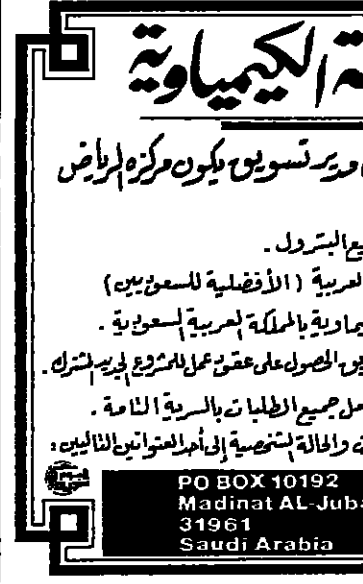 ة الكيمياوية
مدير تسويق يكون مركزه الرياض
يع البترول .
لعربية ( الأفضلية للسعوديين )
يماوية بالمملكة العربية السعودية .
يق الحصول على عقود عمل للمشروع الجديد المشترك .
مل جميع الطلبات بالسرية التامة .
ن والحالة الشخصية إلى أحد العنوانين التاليين :
PO BOX 10192
Madinat AL-Juba
31961
Saudi Arabia